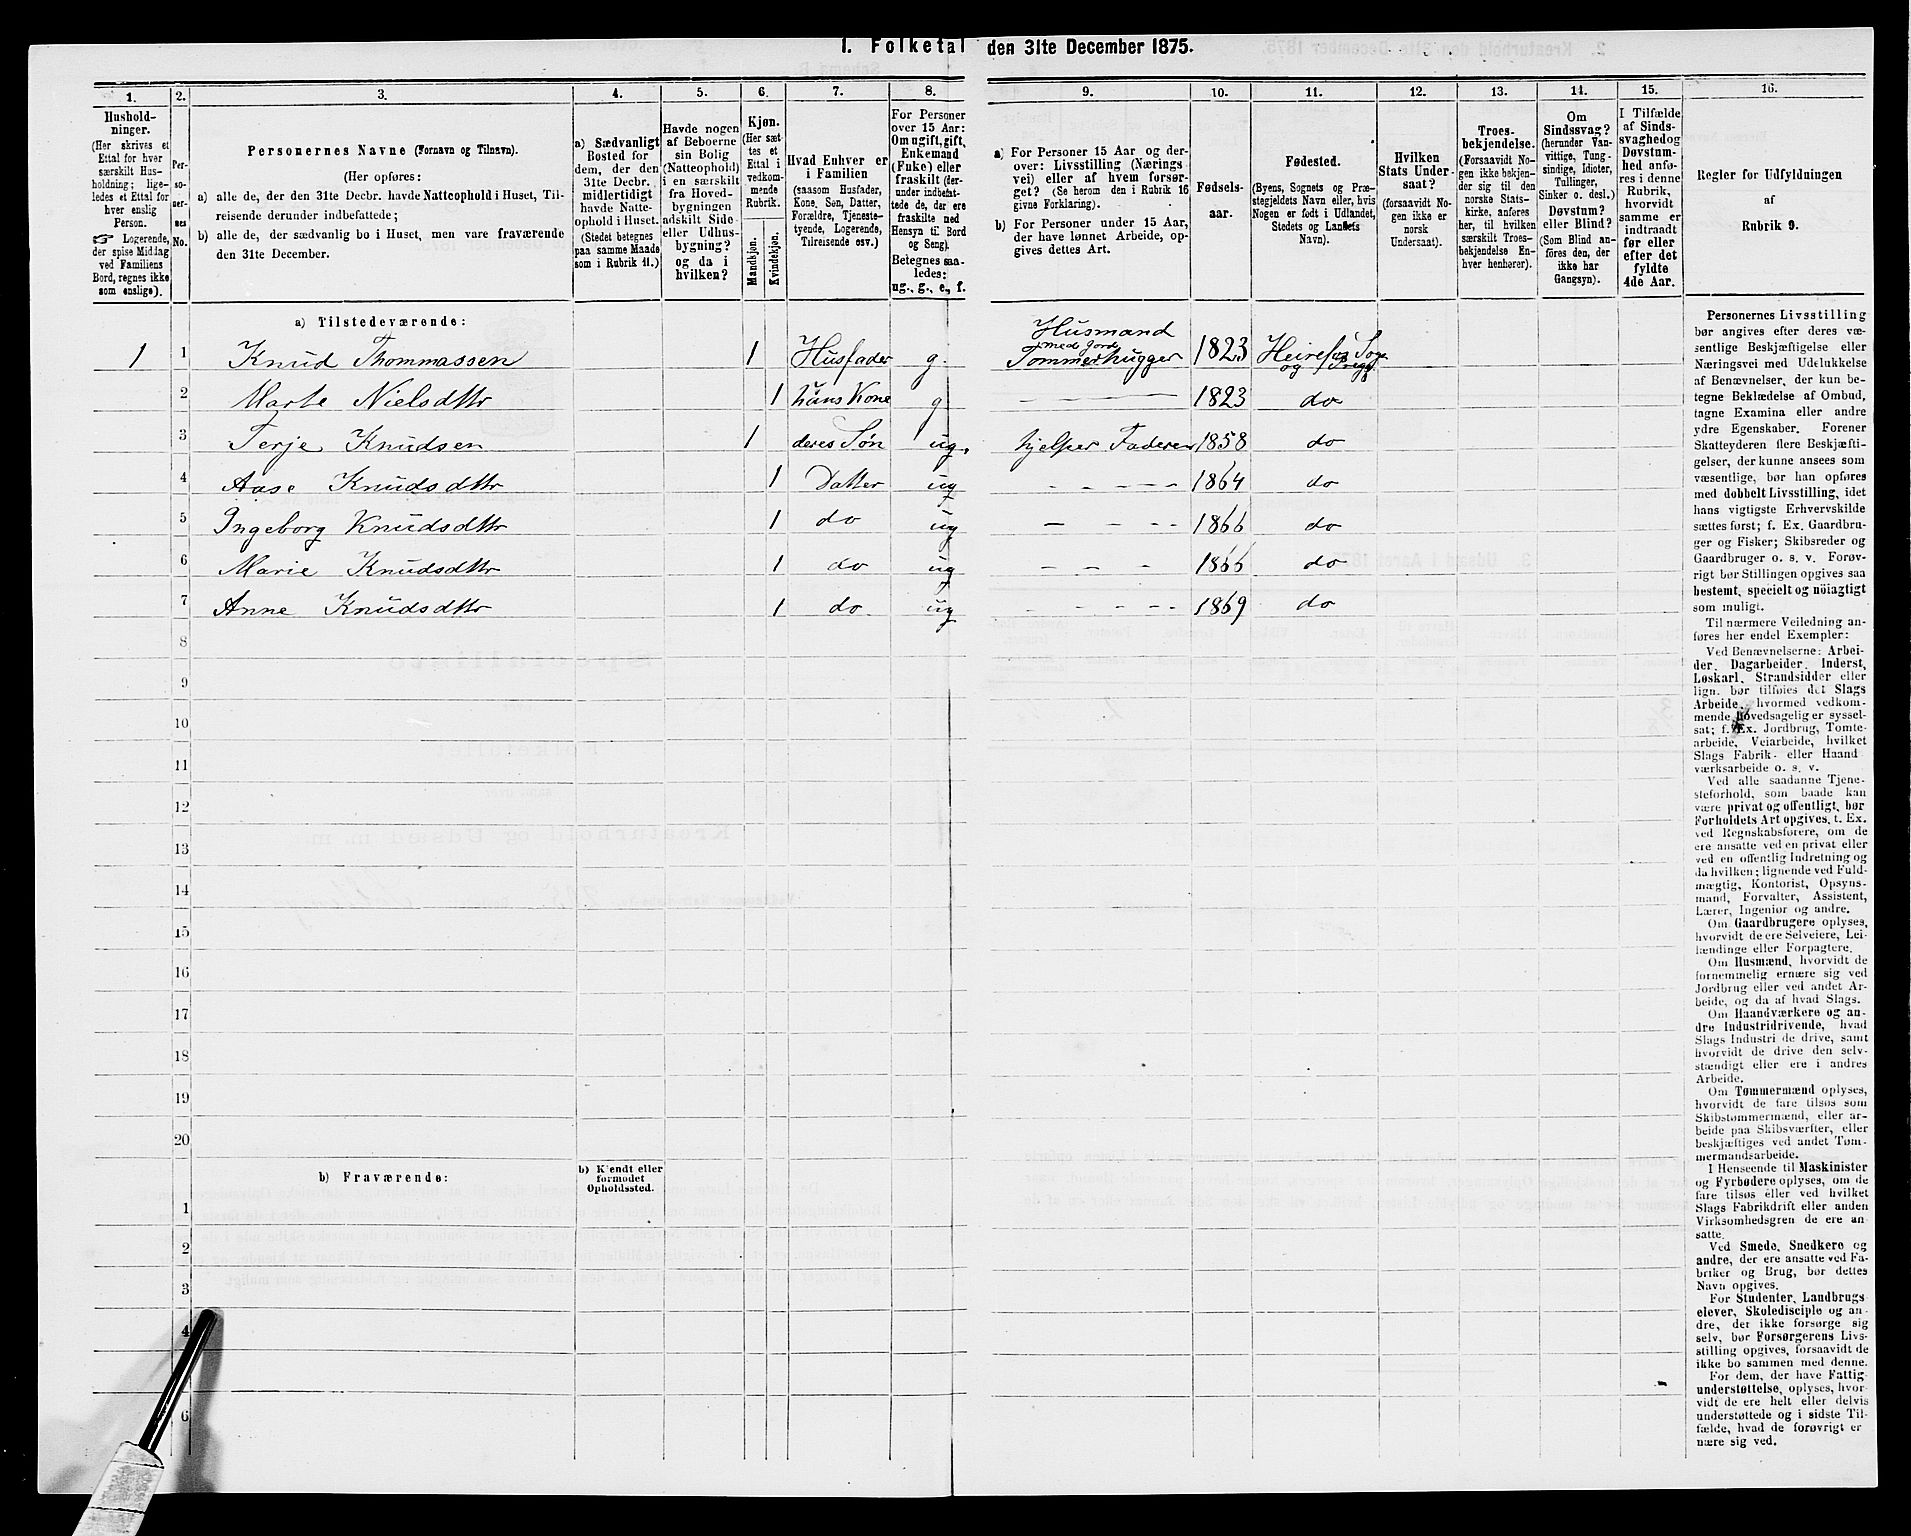 1. Folketal den 31te December 1875.
1. 2. 3. 4. 5. 6. 7. 8. 9. 10. 11. 12. 13. 14. 15. 16.
Hushold-
ninger.
(Her skrives et
Ettal for hver
særskilt Hus-
holdning; lige-
ledes et Ettal for
hver enslig
Person.
☞ Logerende,
der spise Middag
ved Familiens
Bord, regnes ikke
som enslige).
Per-
so-
ner-
nes
No.
Personernes Navne (Fornavn og Tilnavn).
(Her opføres:
a) alle de, der den 31te Decbr. havde Natteophold i Huset, Til-
reisende derunder indbefattede;
b) alle de, der sædvanlig bo i Huset, men vare fraværende
den 31te December.
a) Sædvanligt
Bosted for
dem, der den
31te Decbr.
midlertidigt
havde Natte-
ophold i Huset.
(Stedet betegnes
paa samme Maade
som i Rubrik 11.)
Havde nogen
af Beboerne
sin Bolig
(Natteophold)
i en særskilt
fra Hoved-
bygningen
adskilt Side-
eller Udhus-
bygning?
og da i
hvilken?
Kjøn.
(Her sæt-
tes et
Ettal i
vedkom-
mende
Rubrik.
Mandkjøn.
Kvindekjøn.
Hvad Enhver er
i Familien
(saasom Husfader,
Kone, Søn, Datter,
Forældre, Tjeneste-
tyende, Logerende,
Tilreisende osv.)
For Personer
over 15 Aar:
Om ugift, gift,
Enkemand
(Enke) eller
fraskilt (der-
under indbefat-
tede de, der ere
fraskilte med
Hensyn til Bord
og Seng).
Betegnes saa-
ledes:
ug., g., e., f.
a) For Personer 15 Aar og der-
over: Livsstilling (Nærings-
vei) eller af hvem forsør-
get? (Se herom den i Rubrik 16
givne Forklaring).
b) For Personer under 15 Aar,
der have lønnet Arbeide, op-
gives dettes Art.
Fødsels-
aar.
Fødested.
(Byens, Sognets og Præ-
stegjeldets Navn eller, hvis
Nogen er født i Udlandet,
Stedets og Landets
Navn).
Hvilken
Stats Under-
saat?
(forsaavidt No-
gen ikke er
norsk
Undersaat).
Troes-
bekjendelse.
(Forsaavidt No-
gen ikke bekjen-
der sig til den
norske Stats-
kirke, anføres
her, til hvilken
særskilt Troes-
bekjendelse En-
hver henhører).
Om
Sindssvag?
(herunder Van-
vittige, Tung-
sindige, Idioter,
Tullinger,
Sinker o. desl.)
Døvstum?
eller Blind?
(Som Blind an-
føres den, der
ikke har
Gangsyn).
I Tilfælde
af Sinds-
svaghed og
Døvstum-
hed anfø-
res i denne
Rubrik,
hvorvidt
samme er
indtraadt
før eller
efter det
fyldte
4de Aar.
Regler for Udfyldningen
af
Rubrik 9.
a) Tilstedeværende:
1 1 Knud Thommassen 1 Husfader g. Husmand med jord Tømmerhugger 1823 og
2 Marte Nielsdttr 1 hans Kone g 1823 do
3 Terje Knudsen 1 deres Søn ug. hjelper Faderen 1858 do
4 Aase Knudsdttr 1 Datter ug 1864 do
5 Ingeborg Knudsdttr 1 do ug 1866 do
6 Marie Knudsdttr 1 do ug 1866 do
7 Anne Knudsdttr 1 do ug 1869 do
8
9
10
11
12
13
14
15
16
17
18
19
20
b) Fraværende:
b) Kjendt eller
formodet
Opholdssted.
1
2
3
4
6
Personernes Livsstilling
bør angives efter deres væ-
sentlige Beskjæftigelse eller
Næringsvei med Udelukkelse
af Benævnelser, der kun be-
tegne Beklædelse af Ombud,
tagne Examina eller andre
ydre Egenskaber. Forener
Skatteyderen flere Beskjæfti-
gelser, der kunne ansees som
væsentlige, bør han opføres
med dobbelt Livsstilling, idet
hans vigtigste Erhvervskilde
sættes først; f. Ex. Gaardbru-
ger og Fisker; Skibsreder og
Gaardbruger o. s. v. Forøv-
rigt bør Stillingen opgives saa
bestemt, specielt og nöiagtigt
som muligt.
Til nærmere Veiledning an-
føres her endel Exempler:
Ved Benævnelserne: Arbei-
der, Dagarbeider, Inderst,
Løskarl, Strandsidder eller
lign. bør tilføies det Slags
Arbeide, hvormed vedkom-
mende hovedsagelig er syssel-
sat; f. Ex. Jordbrug, Tomte-
arbeide, Veiarbeide, hvilket
Slags Fabrik- eller Haand
værksarbeide o. s. v.
Ved alle saadanne Tjene-
steforhold, som baade kan
være privat og offentligt, bør
Forholdets Art opgives, t. Ex.
ved Regnskabsførere, om de
ere ansatte ved en privat eller
ved en offentlig Indretning og
da hvilken; lignende ved Fuld-
mægtig, Kontorist, Opsyns-
mand, Forvalter, Assistent,
Lærer, Ingeniør og andre.
Om Gaardbrugere oplyses,
hvorvidt de ere Selveiere, Lei-
lændinge eller Forpagtere.
Om Husmænd, hvorvidt de
fornemmelig ernære sig ved
Jordbrug eller ved andet Ar-
beide, og da af hvad Slags.
Om Haandværkere og an-
dre Industridrivende, hvad
Slags Industri de drive, samt
hvorvidt de drive den selv-
stændigt eller ere i andres
Arbeide.
Om Tømmermænd oplyses,
hvorvidt de fare tilsøs som
Skibstømmermænd, eller ar-
beide paa Skibsværfter, eller
beskjæftiges ved andet Tøm-
mermandsarbeide.
I Henseende til Maskinister
og Fyrbødere oplyses, om de
fare tilsøs eller ved hvilket
Slags Fabrikdrift eller anden
Virksomhedsgren de ere an-
satte.
Ved Smede, Snedkere og
andre, der ere ansatte ved Fa-
briker og Brug, bør dettes
Navn opgives.
For Studenter, Landbrugs-
elever, Skoledisciple og an-
dre, der ikke forsørge sig
selv, bør Forsørgerens Livs-
stilling opgives, forsaavidt de
ikke bo sammen med denne.
For dem, der have Fattig-
understøttelse, oplyses, hvor-
vidt de ere helt eller delvis
understøttede og i sidste Til-
fælde, hvad de forøvrigt er
nære sig ved.